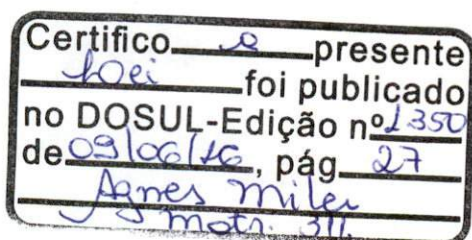 Certifico a presente
Lei foi publicado
no DOSUL-Edição nº 1350
de 09/06/16, pág 27
Agnes Miler
Matr. 311